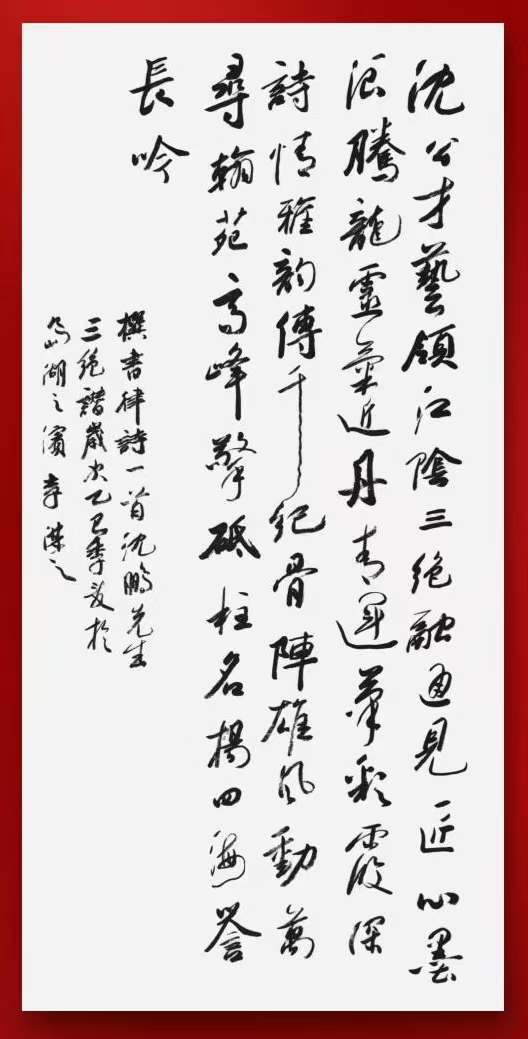 沈公才藝領江陰三絕融通見匠心墨
浪騰龍靈氣近丹青運筆彩霞深
詩情雅韵傳千紀骨陣雄風動萬
尋翰苑高峰擎砥柱名揚四海譽
長吟
撰書律詩一首沈鵬先生
三絕譜歲次乙巳季夏於
湖之濱李